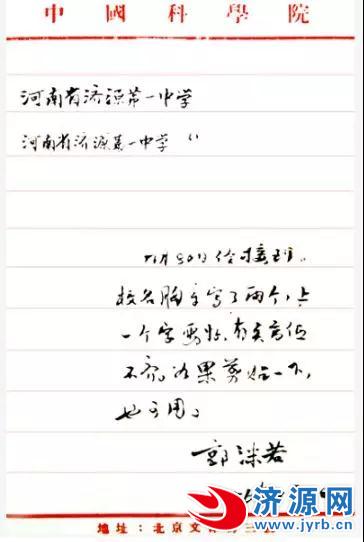 中國科學院
河南省济源第一中学
河南省济源第一中学
月30日信接到。
校名胸章写了两个,上
一个字要好,有高低
不齐,如果剪一下,
也可用。
郭沫若
济源网
www.jyrb.cn
地址:北京文